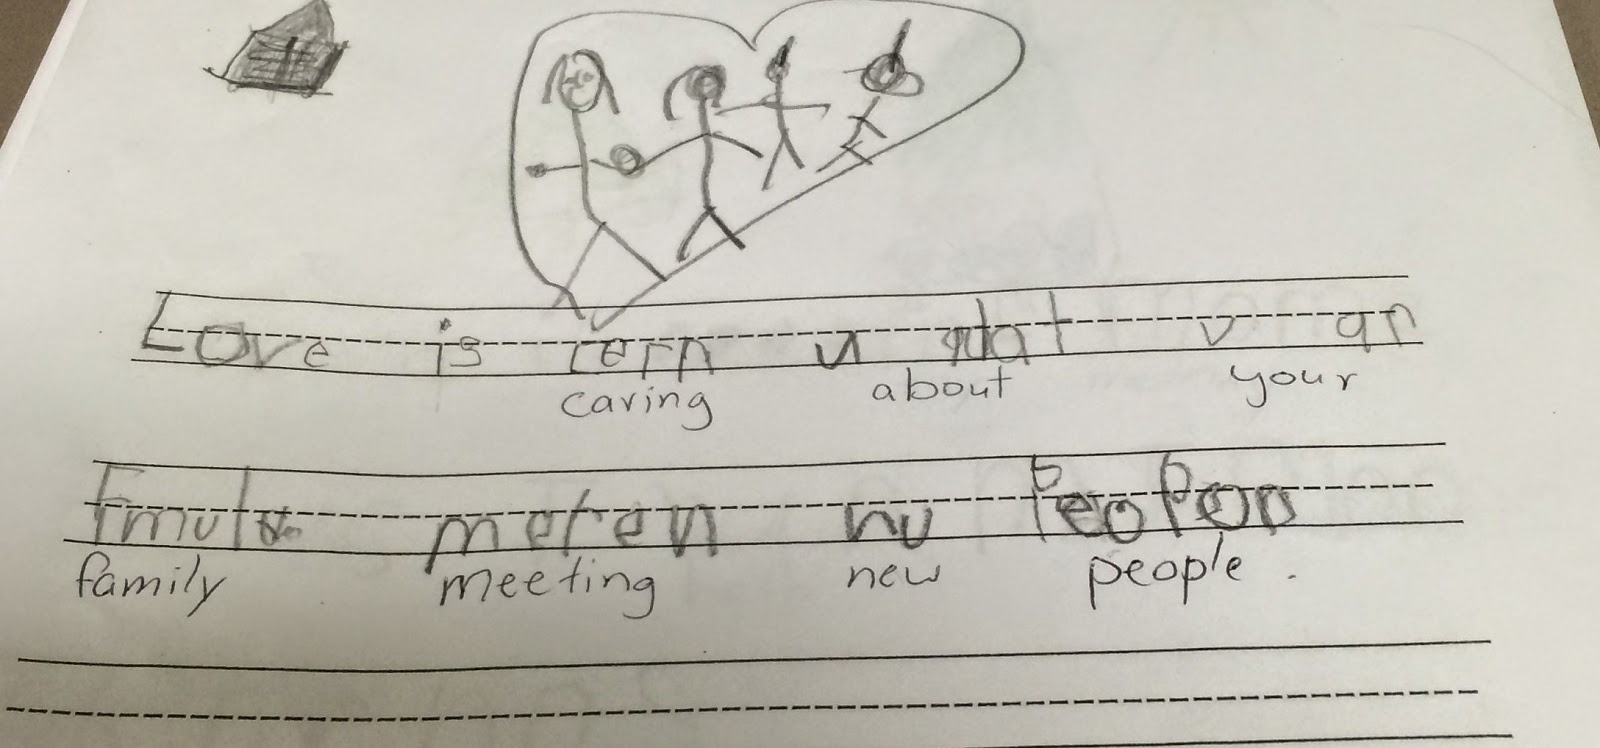 Love is cern u abat v ar
caring about your
Fmul meten nu PeoPoo
family meeting new people.